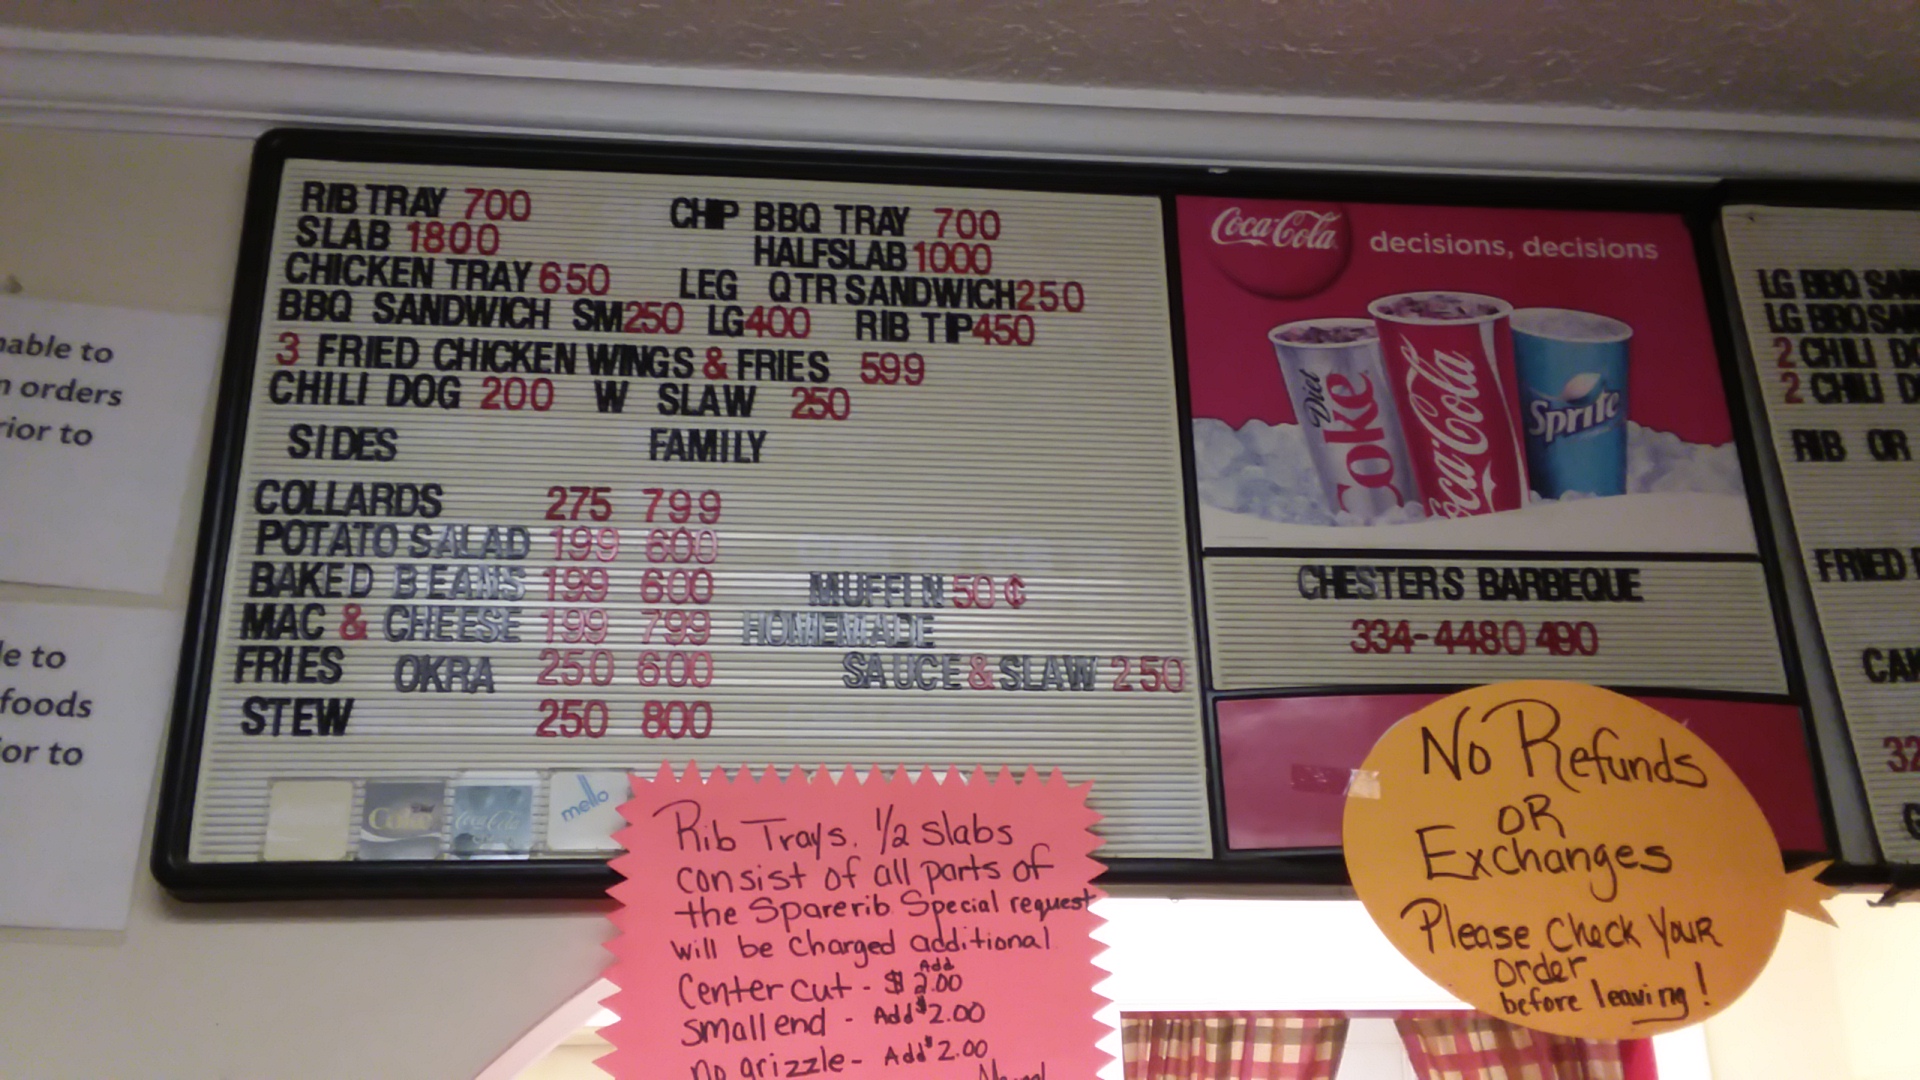 RIB TRAY 700 CHIP BBQ TRAY 700
SLAB 1800 HALFSLAB 1000
CHICKEN TRAY 650 LEG QTR SANDWICH 250
BBQ SANDWICH SM 250 LG 400 RIB TIP 450
3 FRIED CHICKEN WINGS & FRIES 599
CHILI DOG 200 W SLAW 250
SIDES FAMILY
COLLARDS 275 799
POTATO SALAD 199 600
BAKED BEANS 199 600 MUFFIN 50¢
MAC & CHEESE 199 799 HOMEMADE
FRIES OKRA 250 600 SAUCE & SLAW 250
STEW 250 800
Diet Coke
Coca-Cola
mello
Coca-Cola
decisions, decisions
Diet Coke
Coca-Cola
Sprite
CHESTERS BARBEQUE
334-4480490
Rib Trays. 1/2 slabs
consist of all parts of
the Sparerib Special request
will be charged additional
Center cut - $ Add 2.00
small end - Add $2.00
no grizzle - Add $2.00
No Refunds
OR
Exchanges
Please Check Your
order
before leaving!
to
orders
to
to
foods
to
LG BBQ
LG BBQ
2 CHILI
2 CHILI
RIB OR
FRIED
32